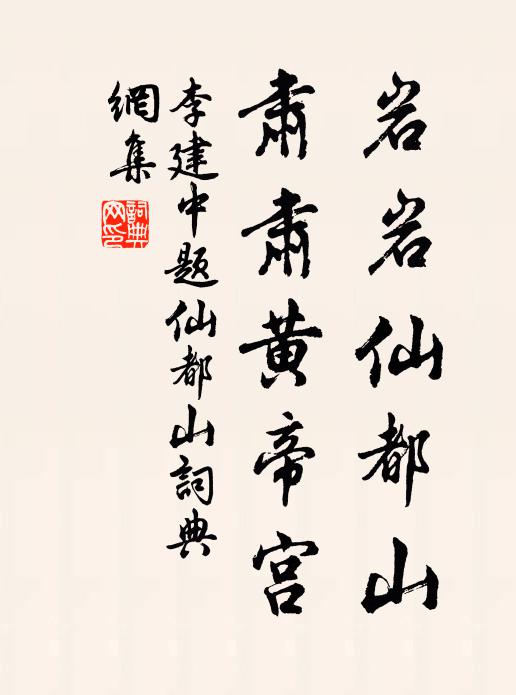 岩岩仙都山
肅肅黄帝宫
李建中題仙都山詞典
網集
詞典
网印